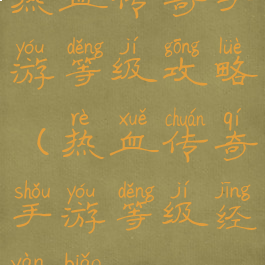 热血传奇手
yóu děng jí gōng lüè
游等级攻略
rè xuě chuán qí
(热血传奇
shǒu yóu děng jí jīng
手游等级经
yàn biǎo